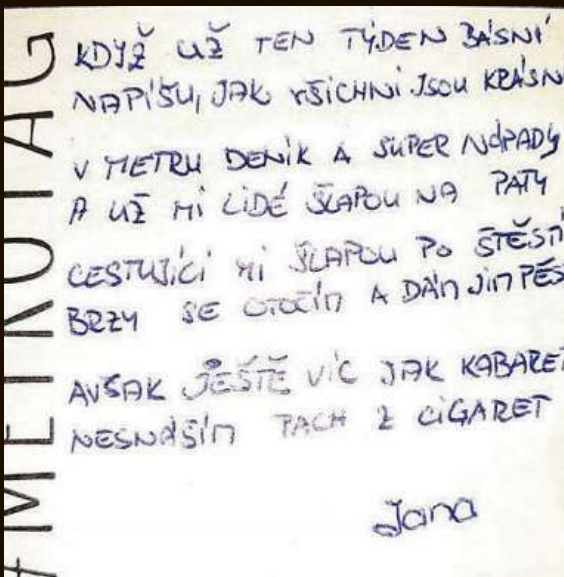 #METROTAG
KDYŽ UŽ TEN TÝDEN BÁSNÍ
NAPÍŠU, JAK VŠICHNI JSOU KRÁSNÍ
V METRU DENÍK A SUPER NÁPADY
A UŽ MI LIDÉ ŠLAPOU NA PATY
CESTUJÍCÍ MI ŠLAPOU PO ŠTĚSTÍ
BRZY SE OTOČÍM A DÁM JIM PĚS
AVŠAK JEŠTĚ VÍC JAK KABARET
NESNÁŠÍM PACH Z CIGARET
Jana